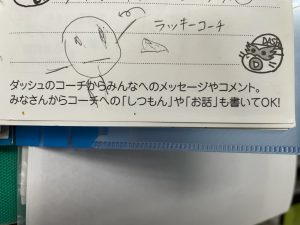 ラッキーコーチ
DASH
D
ダッシュのコーチからみんなへのメッセージやコメント。
みなさんからコーチへの「しつもん」や「お話」も書いてOK!